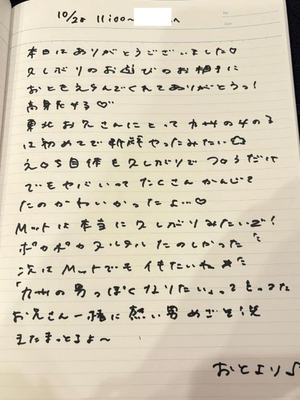 10/28 11:00~
本日はありがとうございました♡
久しぶりのお遊びのお相手に
おとをえらんでくれてありがとうっ!
高身長すぎる♡
東北お兄さんにとって九州の
は初めてで新鮮やったみたい
自体も久しぶりで
でもヤバいってたくさんかんじて
たのかわいかったよ…♡
Mットは本当に久しぶりみたいで!
ポカポカヌルヌルたのしかった
次はMットでもイキたいね
「九州の男っぽくなりたい」って言ってた
お兄さん一緒に熱い男めざそ
またまっとるよ~
おとより♪